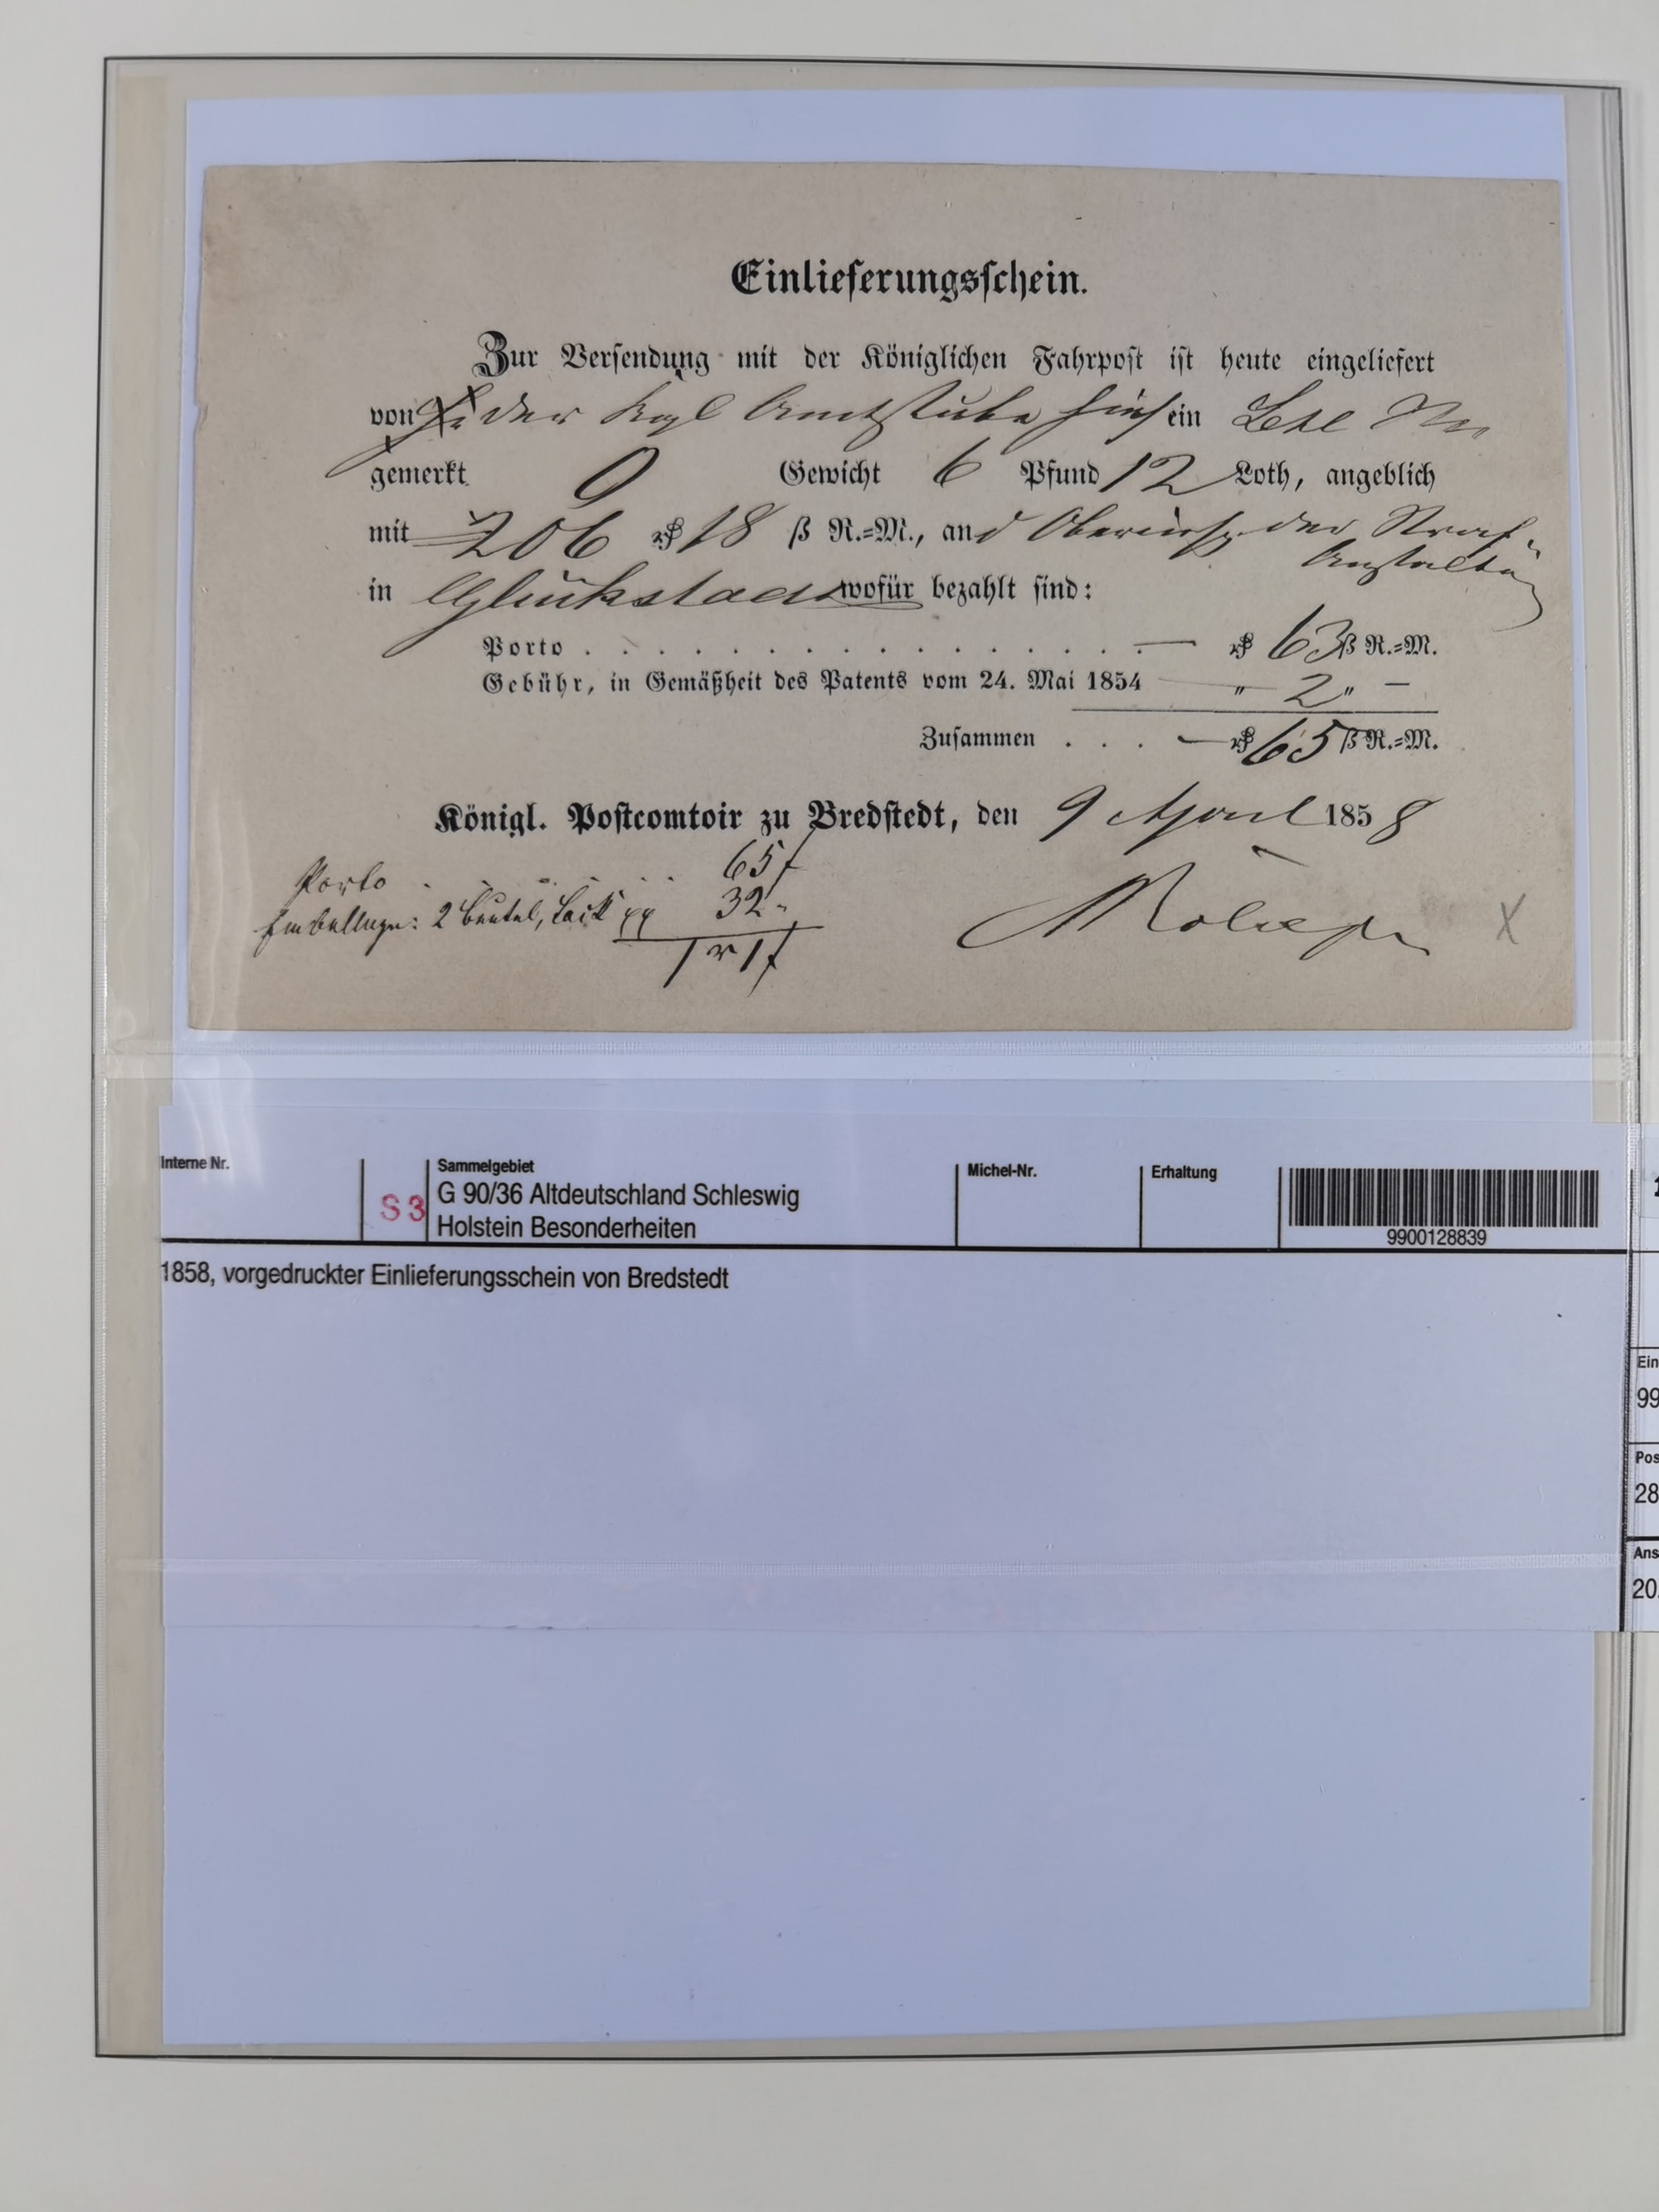 Einlieferungsschein.
Zur Versendung mit der Königlichen Fahrpost ist heute eingeliefert
von der Kgl Amtstube hies ein Btl
gemerkt Gewicht 6 Pfund 12 Loth, angeblich
mit 206 Rthlr 18 ß R.=M., an d Oberinsp. der Straf-
Anstalten
in Glückstadt wofür bezahlt sind:
Porto . . . . . . . . . . . . . . . — Rthlr 63 ß R.=M.
Gebühr, in Gemäßheit des Patents vom 24. Mai 1854 — „ 2 „ —
Zusammen . . . — Rthlr 65 ß R.=M.
Königl. Postcomtoir zu Bredstedt, den 9 April 1858
Porto . . . . . . 65 ß
Emballage: 2 Beutel, Lack 32 "
1 r 1 ß
X
Interne Nr.
S 3
Sammelgebiet
G 90/36 Altdeutschland Schleswig
Holstein Besonderheiten
Michel-Nr.
Erhaltung
9900128839
1858, vorgedruckter Einlieferungsschein von Bredstedt
Ein
99
Pos
28
Ans
20